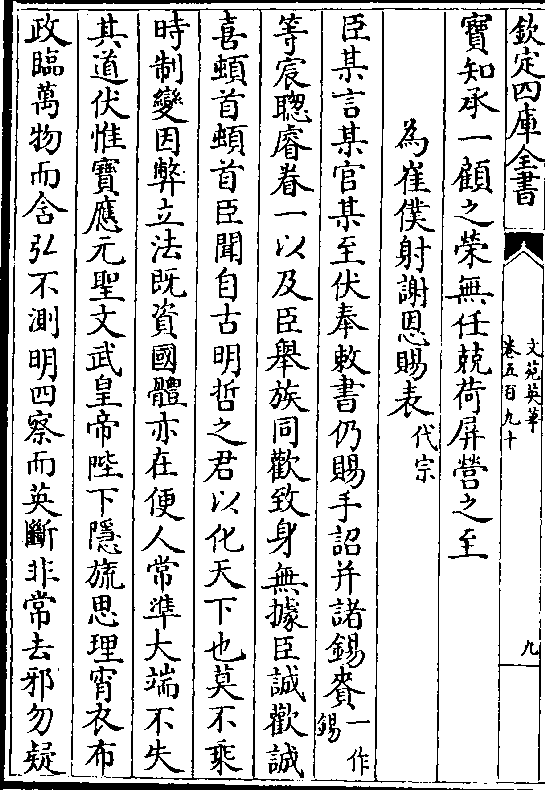 欽定四庫全書
文苑英華
卷五百九十
九
寳知承一顧之榮無任兢荷屏營之至
為崔僕射謝恩賜表代宗
臣某言某官某至伏奉敕書仍賜手詔并諸錫賚一作錫
等宸聰睿眷一以及臣舉族同歡致身無據臣誠歡誠
喜頓首頓首臣聞自古明哲之君以化天下也莫不乘
時制變因弊立法既資國體亦在便人常準大端不失
其道伏惟寳應元聖文武皇帝陛下隱旒思理宵衣布
政臨萬物而含弘不測明四察而英斷非常去邪勿疑